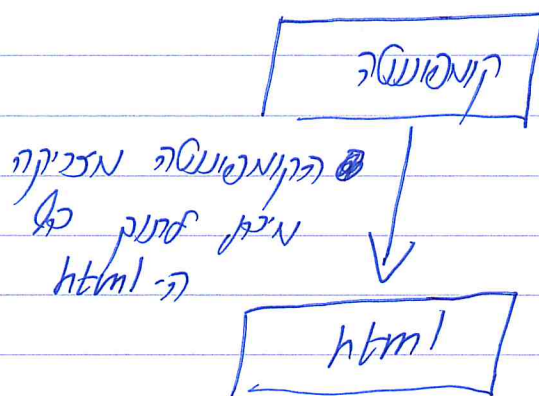 קומפוננטה
הקומפוננטה מזריקה
מידע לתוך כל
ה- html
html